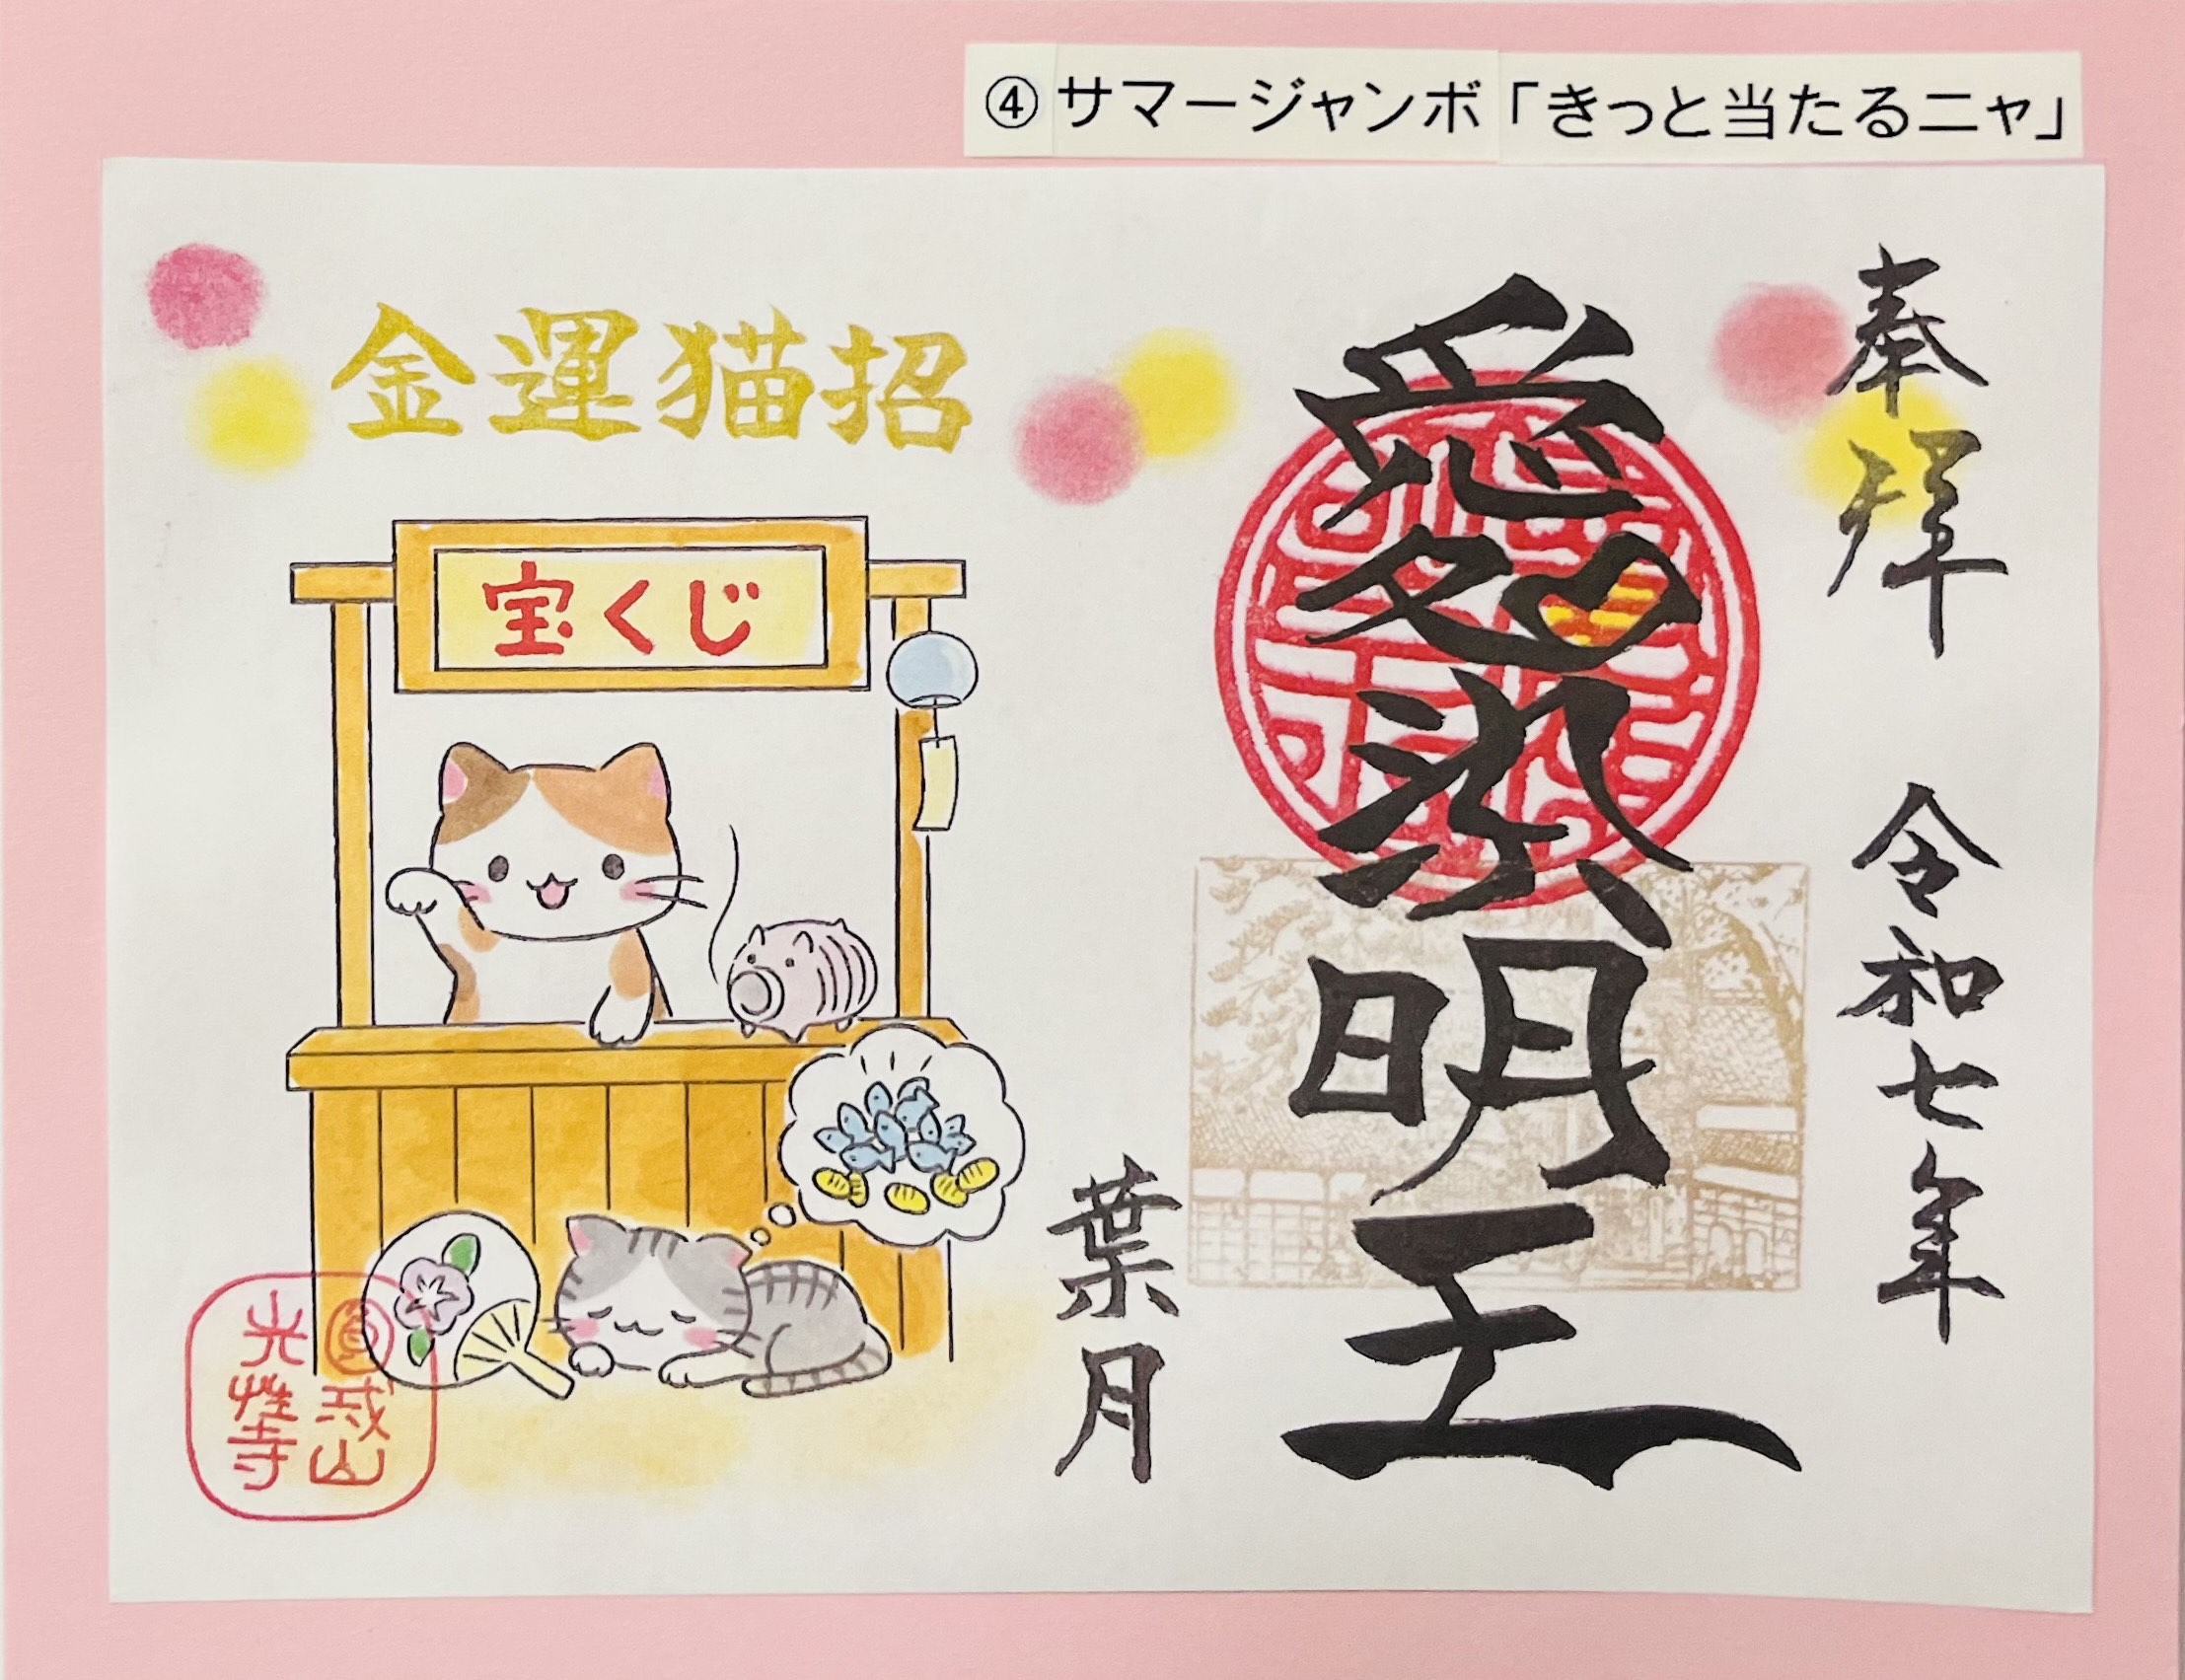 ④サマージャンボ「きっと当たるニャ」
奉拝
令和七年
愛染明王
葉月
金運猫招
宝くじ
山
光性寺